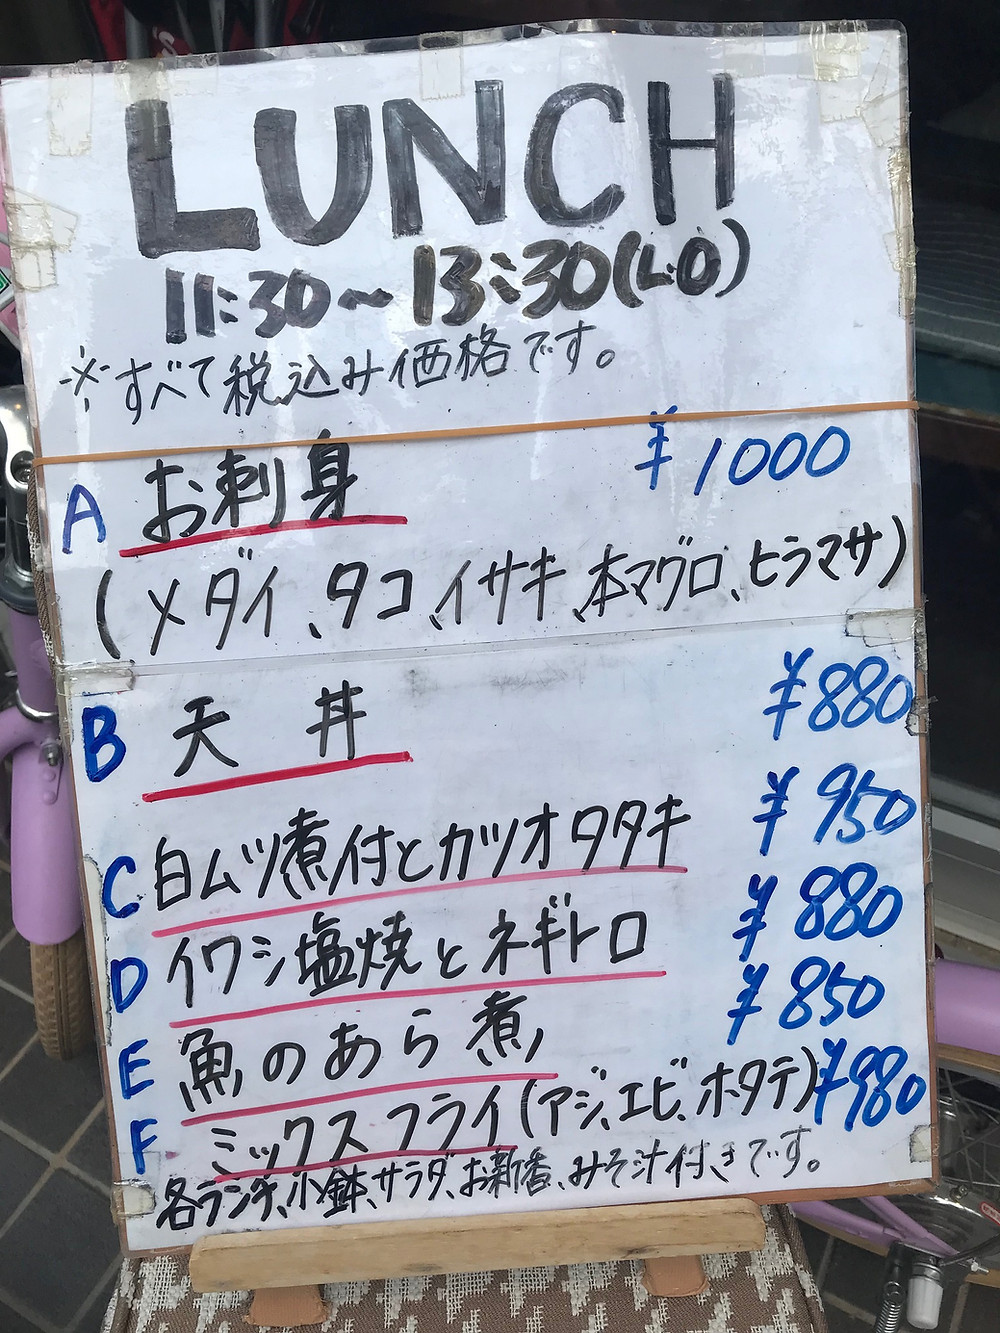 LUNCH
11:30~13:30(L.O)
※すべて税込み価格です。
A お刺身 ¥1000
(メダイ、タコ、イサキ、本マグロ、ヒラマサ)
B 天丼 ¥880
C 白ムツ煮付とカツオタタキ ¥950
D イワシ塩焼とネギトロ ¥880
E 魚のあら煮 ¥850
F ミックスフライ(アジ、エビ、ホタテ) ¥980
各ランチ、小鉢、サラダ、お新香、みそ汁付きです。